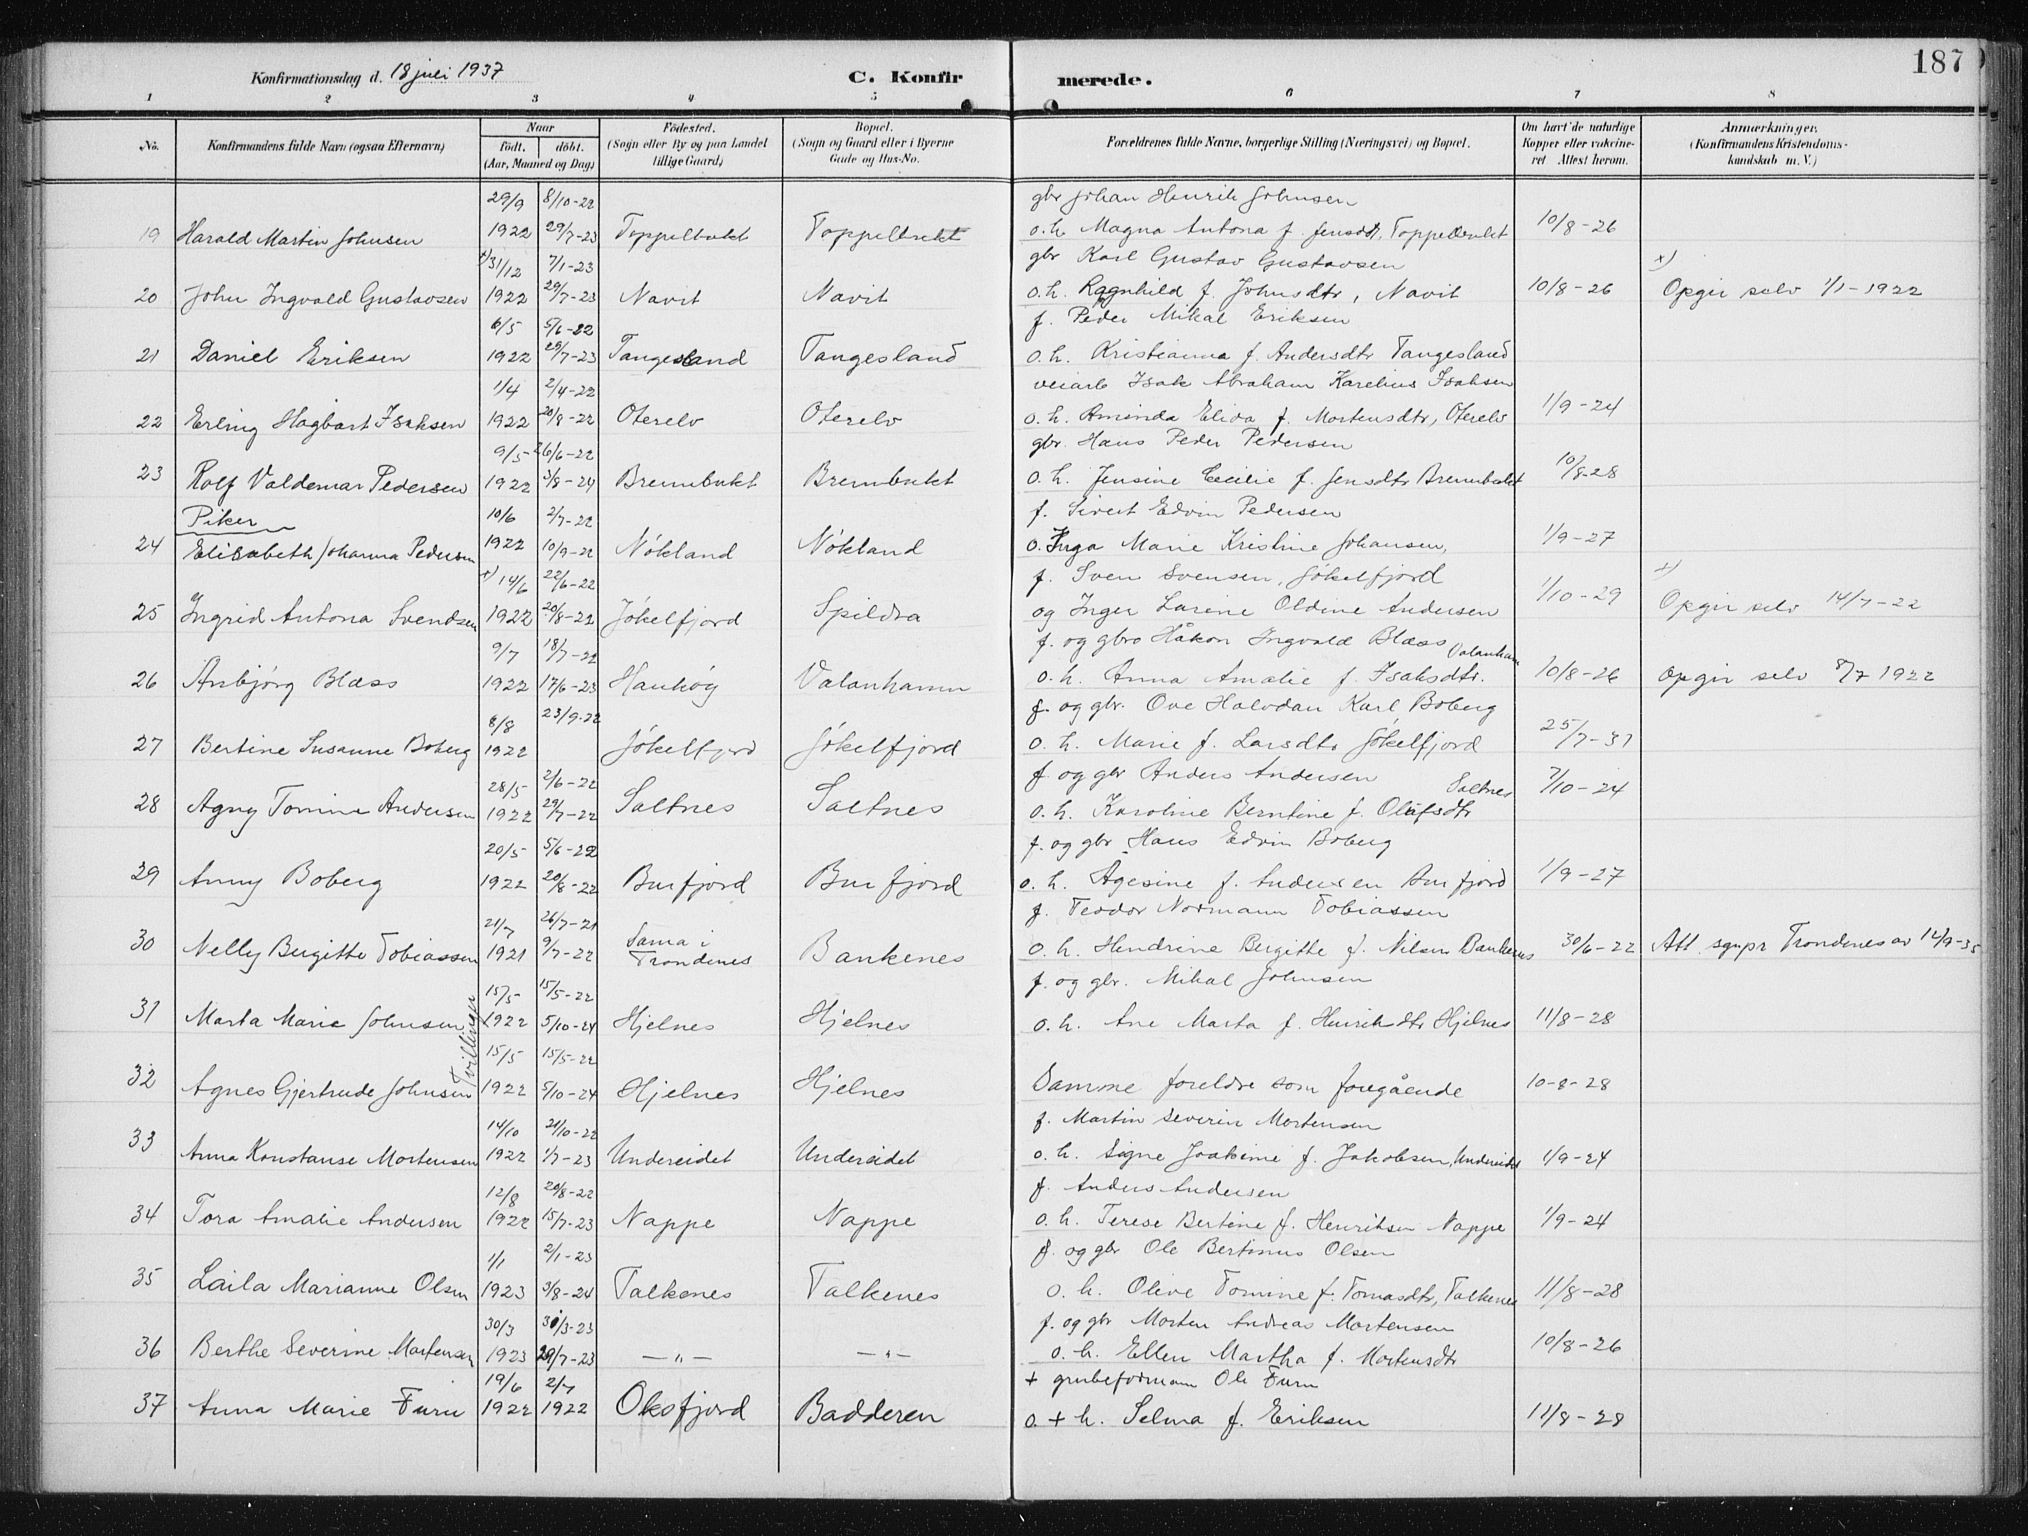 187
Konfirmationsdag d. 18 juli 1937 C. Konfirmerede.
1 2 3 4 5 6 7 8
No. Konfirmandens fulde Navn (ogsaa Efternavn) Naar födt. döbt. (Aar, Maaned og Dag) Födested. (Sogn eller By og paa Landet tillige Gaard) Bopæl. (Sogn og Gaard eller i Byerne Gade og Hus-No. Forældrenes fulde Navne, borgerlige Stilling (Næringsvei) og Bopæl. Om havt de naturlige Kopper eller vakcineret Attest herom. Anmærkninger. (Konfirmandens Kristendomskundskab m. V.)
29/9 8/10-22 gbr Johan Henrik Johnsen
19 Harald Martin Johnsen 1922 29/7-23 Toppelbukt Toppelbukt o. h. Magna Antona f. Jensdtr. Toppelbukt 10/8-26
x) 31/12 7/1-23 gbr Karl Gustav Gustavsen x)
20 John Ingvald Gustavsen 1922 29/7-23 Navit Navit o. h. Ragnhild f. Johnsdtr, Navit 10/8-26 Opgir selv 1/1-1922
6/5 5/6-22 f. Peder Mikal Eriksen
21 Daniel Eriksen 1922 29/7-23 Tangesland Tangesland o. h. Kristianna f. Andersdtr Tangesland
1/4 2/4-22 veiarb Isak Abraham Karelius Isaksen
22 Erling Hagbart Isaksen 1922 20/8-22 Oterelv Oterelv o. h. Aminda Elida f. Mortensdtr, Oterelv 1/9-24
9/5 26/6-22 gbr. Hans Peder Pedersen
23 Rolf Valdemar Pedersen 1922 3/8-24 Brennbukt Brennbukt o. h. Jensine Cecilie f. Jensdtr Brennbukt 10/8-28
Piker 10/6 2/7-22 f. Sivert Edvin Pedersen
24 Elisabeth Johanna Pedersen 1922 10/9-22 Nökland Nökland o. Inga Marie Kristine Johansen, 1/9-27
x) 14/6 22/6-22 f. Sven Svensen, Jökelfjord x)
25 Ingrid Antona Svendsen 1922 20/8-22 Jökelfjord Spildra og Inger Larine Oldine Andersen 1/10-29 Opgir selv 14/7-22
9/7 18/7-22 f. og gbr Håkon Ingvald Blæss Valanhamn
26 Arnbjörg Blæss 1922 17/6-23 Haukøy Valanhamn o. h. Anna Amalie f. Isaksdtr. 10/8-26 Opgir selv 8/7 1922
8/8 23/9-22 f. og gbr. Ove Halvdan Karl Boberg
27 Bertine Susanne Boberg 1922 Jökelfjord Jökelfjord o. h. Marie f. Larsdtr Jökelfjord 25/7-31
28/5 2/6-22 f. og gbr Anders Andersen Saltnes
28 Agny Tomine Andersen 1922 29/7-22 Saltnes Saltnes o. h. Karoline Berntine f. Olufsdtr 7/10-24
20/5 5/6-22 f. og gbr Hans Edvin Boberg
29 Anny Boberg 1922 20/8-22 Burfjord Burfjord o. h. Agesine f. Andersen Burfjord 1/9-27
21/7 26/7-21 f. Teodor Normann Tobiassen
30 Nelly Birgitte Tobiassen 1921 9/7-22 Sama i Trondenes Bankenes o. h. Hendrine Birgitte f. Nilsen Bankenes 30/6-22 Att. sgnpr Trondenes av 14/9-35
15/5 15/5-22 f. og gbr. Mikal Johnsen
31 Marta Marie Johnsen 1922 5/10-24 Hjelnes Hjelnes o. h. Ane Marta f. Henriksdtr Hjelnes 11/8-28
Tvillinger
15/5 15/5-22
32 Agnes Gjertrude Johnsen 1922 5/10-24 Hjelnes Hjelnes Samme foreldre som foregående 10-8-28
14/10 21/10-22 f. Martin Severin Mortensen
33 Anna Konstanse Mortensen 1922 1/7-23 Undereidet Undereidet o. h. Signe Joakime f. Jakobsen, Undereidet 1/9-24
12/8 20/8-22 f. Anders Andersen
34 Tora Amalie Andersen 1922 15/7-23 Nappe Nappe o. h. Terese Bertine f. Henriksen Nappe 1/9-24
1/1 2/1-23 f. og gbr Ole Bertinus Olsen
35 Laila Marianne Olsen 1923 3/8-24 Talkenes Talkenes o. h. Olive Tomine f. Tomasdtr, Talkenes 11/8-28
30/3 31/3-23 f. og gbr Morten Andreas Mortensen
36 Berthe Severine Mortensen 1923 29/7-23 — " — — " — o. h. Ellen Martha f. Mortensdtr 10/8-26
19/6 2/7 + grubeformann Ole Furu
37 Anna Marie Furu 1922 1922 Oksfjord Badderen o. + h. Selma f. Eriksen 11/8-28